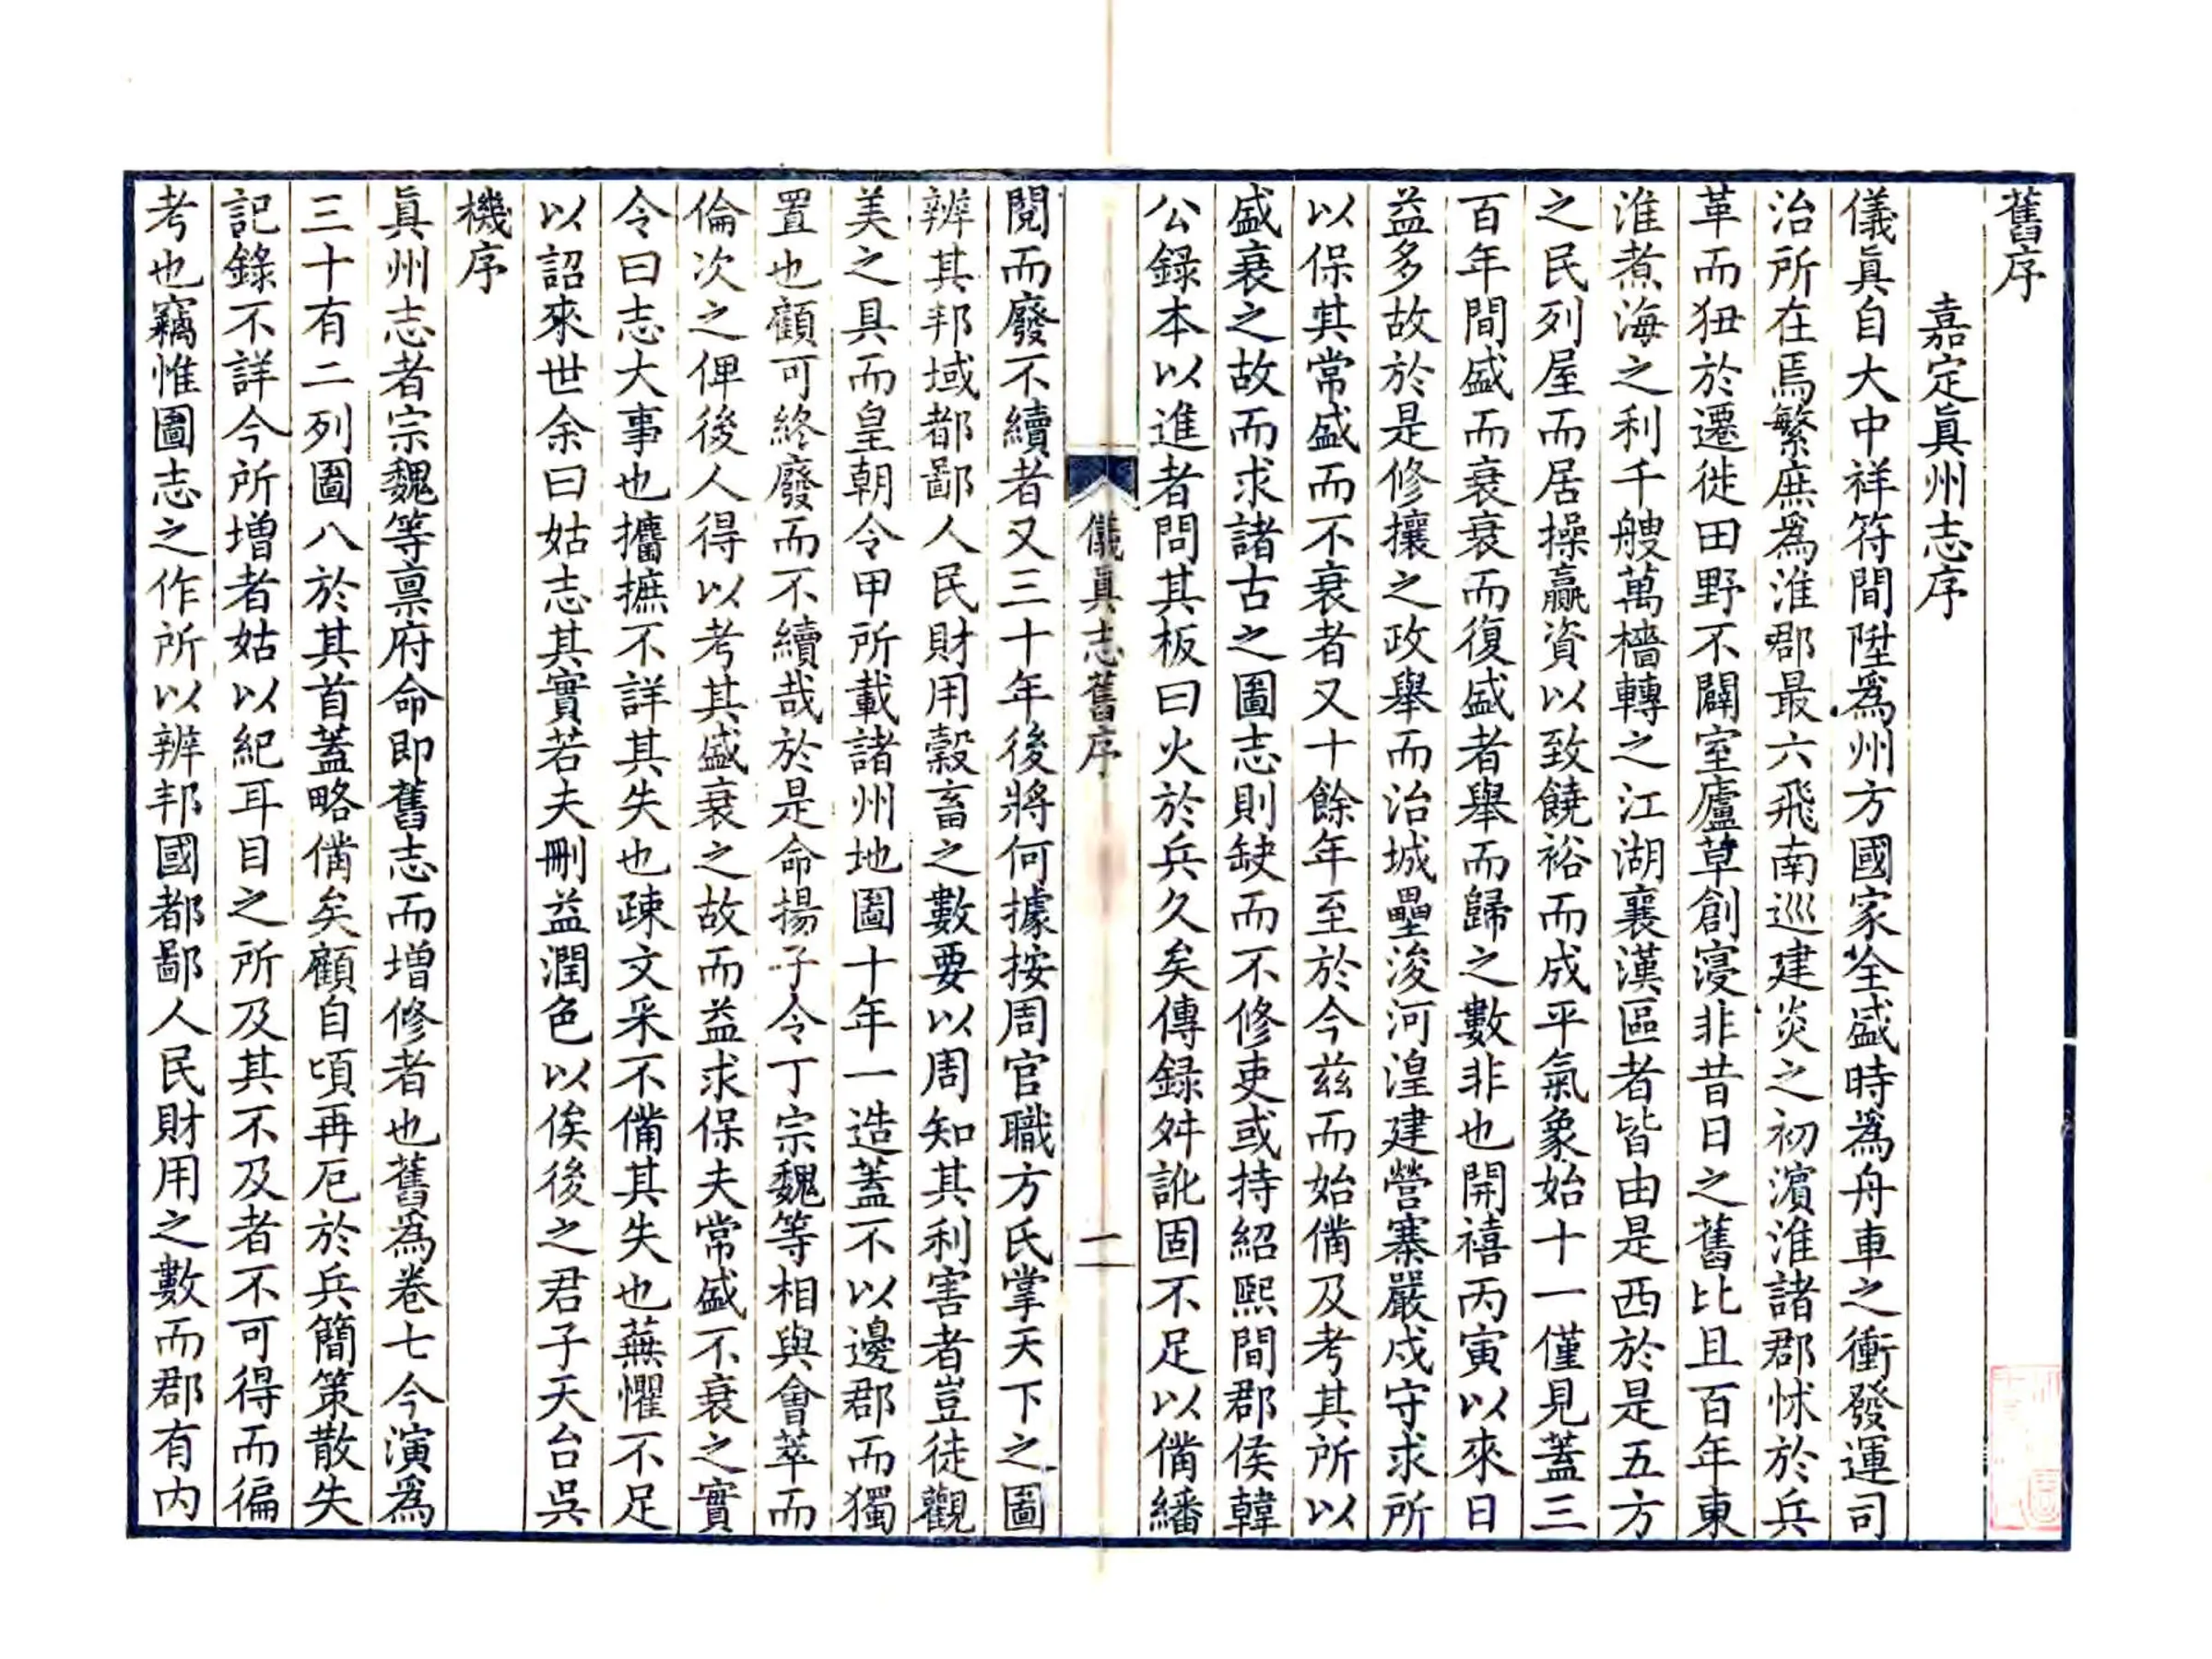 舊序
嘉定眞州志序
儀眞自大中祥符間陞爲州方國家全盛時爲舟車之衝發運司
治所在焉繁庶爲淮郡最六飛南巡建炎之初濵淮諸郡怵於兵
革而狃於遷徙田野不闢室廬草創寖非昔日之舊比且百年東
淮煮海之利千艘萬檣轉之江湖襄漢區者皆由是西於是五方
之民列屋而居操贏資以致饒裕而成平氣象始十一僅見蓋三
百年間盛而衰衰而復盛者舉而歸之數非也開禧丙寅以來日
益多故於是修攘之政舉而治城壘浚河湟建營寨嚴戍守求所
以保其常盛而不衰者又十餘年至於今兹而始備及考其所以
盛衰之故而求諸古之圖志則缺而不修吏或持紹熙間郡侯韓
公録本以進者問其板曰火於兵久矣傳録舛訛固不足以備繙
儀眞志舊序
一
閱而廢不續者又三十年後將何據按周官職方氏掌天下之圖
辨其邦域都鄙人民財用穀畜之數要以周知其利害者豈徒觀
美之具而皇朝令甲所載諸州地圖十年一造蓋不以邊郡而獨
置也顧可終廢而不續哉於是命揚子令丁宗魏等相與會萃而
倫次之俾後人得以考其盛衰之故而益求保夫常盛不衰之實
令曰志大事也攟摭不詳其失也疎文采不備其失也蕪懼不足
以詔來世余曰姑志其實若夫刪益潤色以俟後之君子天台吳
機序
眞州志者宗魏等禀府命即舊志而增修者也舊爲卷七今演爲
三十有二列圖八於其首蓋略備矣顧自頃再厄於兵簡策散失
記錄不詳今所增者姑以紀耳目之所及其不及者不可得而徧
考也竊惟圖志之作所以辨邦國都鄙人民財用之數而郡有内